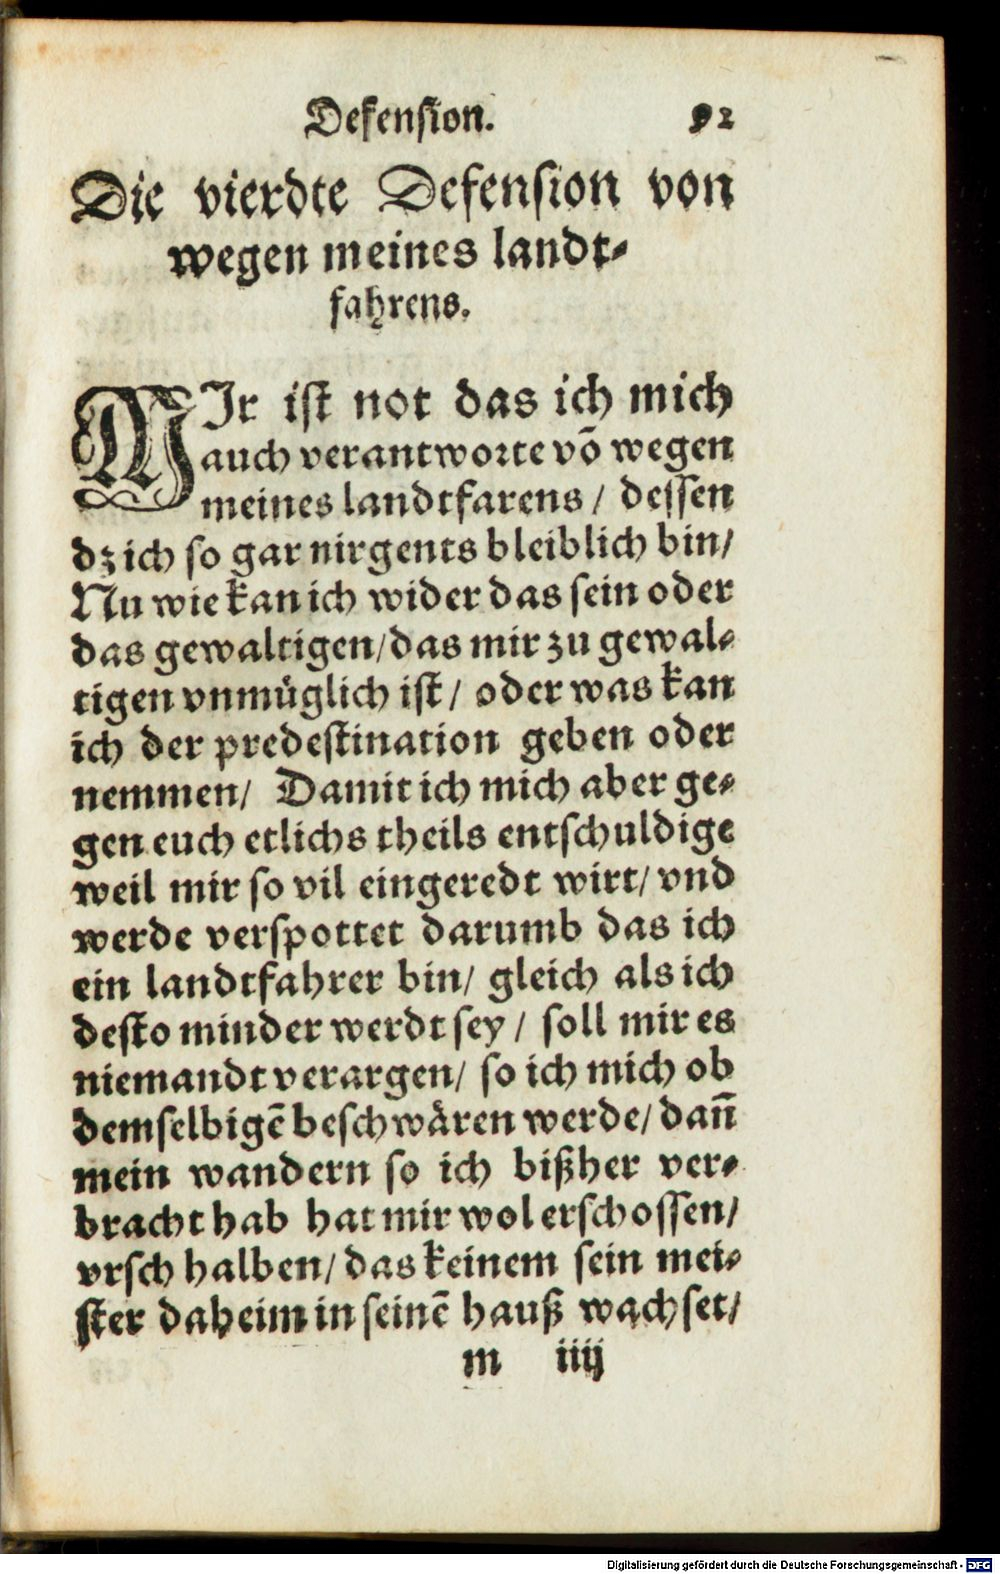 Defension. 92
Die vierdte Defension von
wegen meines landt⸗
fahrens.
MIr ist not das ich mich
auch verantworte võ wegen
meines landtfarens / dessen
dz ich so gar nirgents bleiblich bin/
Nu wie kan ich wider das sein oder
das gewaltigen/das mir zu gewal⸗
tigen vnmüglich ist / oder was kan
ich der predestination geben oder
nemmen/ Damit ich mich aber ge⸗
gen euch etlichs theils entschuldige
weil mir so vil eingeredt wirt/ vnd
werde verspottet darumb das ich
ein landtfahrer bin/ gleich als ich
desto minder werdt sey / soll mir es
niemandt verargen/ so ich mich ob
demselbigẽ beschwären werde/ dañ
mein wandern so ich bißher ver⸗
bracht hab hat mir wol erschossen/
vrsch halben/ das keinem sein mei⸗
ster daheim in seinẽ hauß wachset/
m iiij
Digitalisierung gefördert durch die Deutsche Forschungsgemeinschaft - DFG